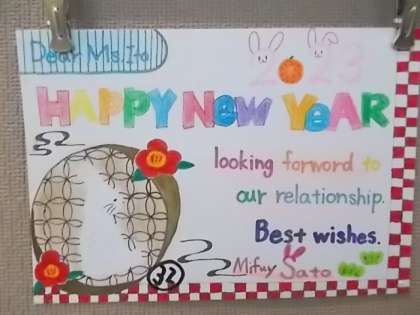 Dear Ms. Ito
2023
HAPPY NEW YEAR
looking forword to
our relationship.
Best wishes.
Mifuy Sato
32